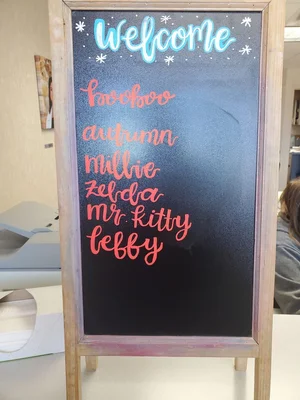 welcome
booboo
autumn
millie
zelda
mr. kitty
leffy